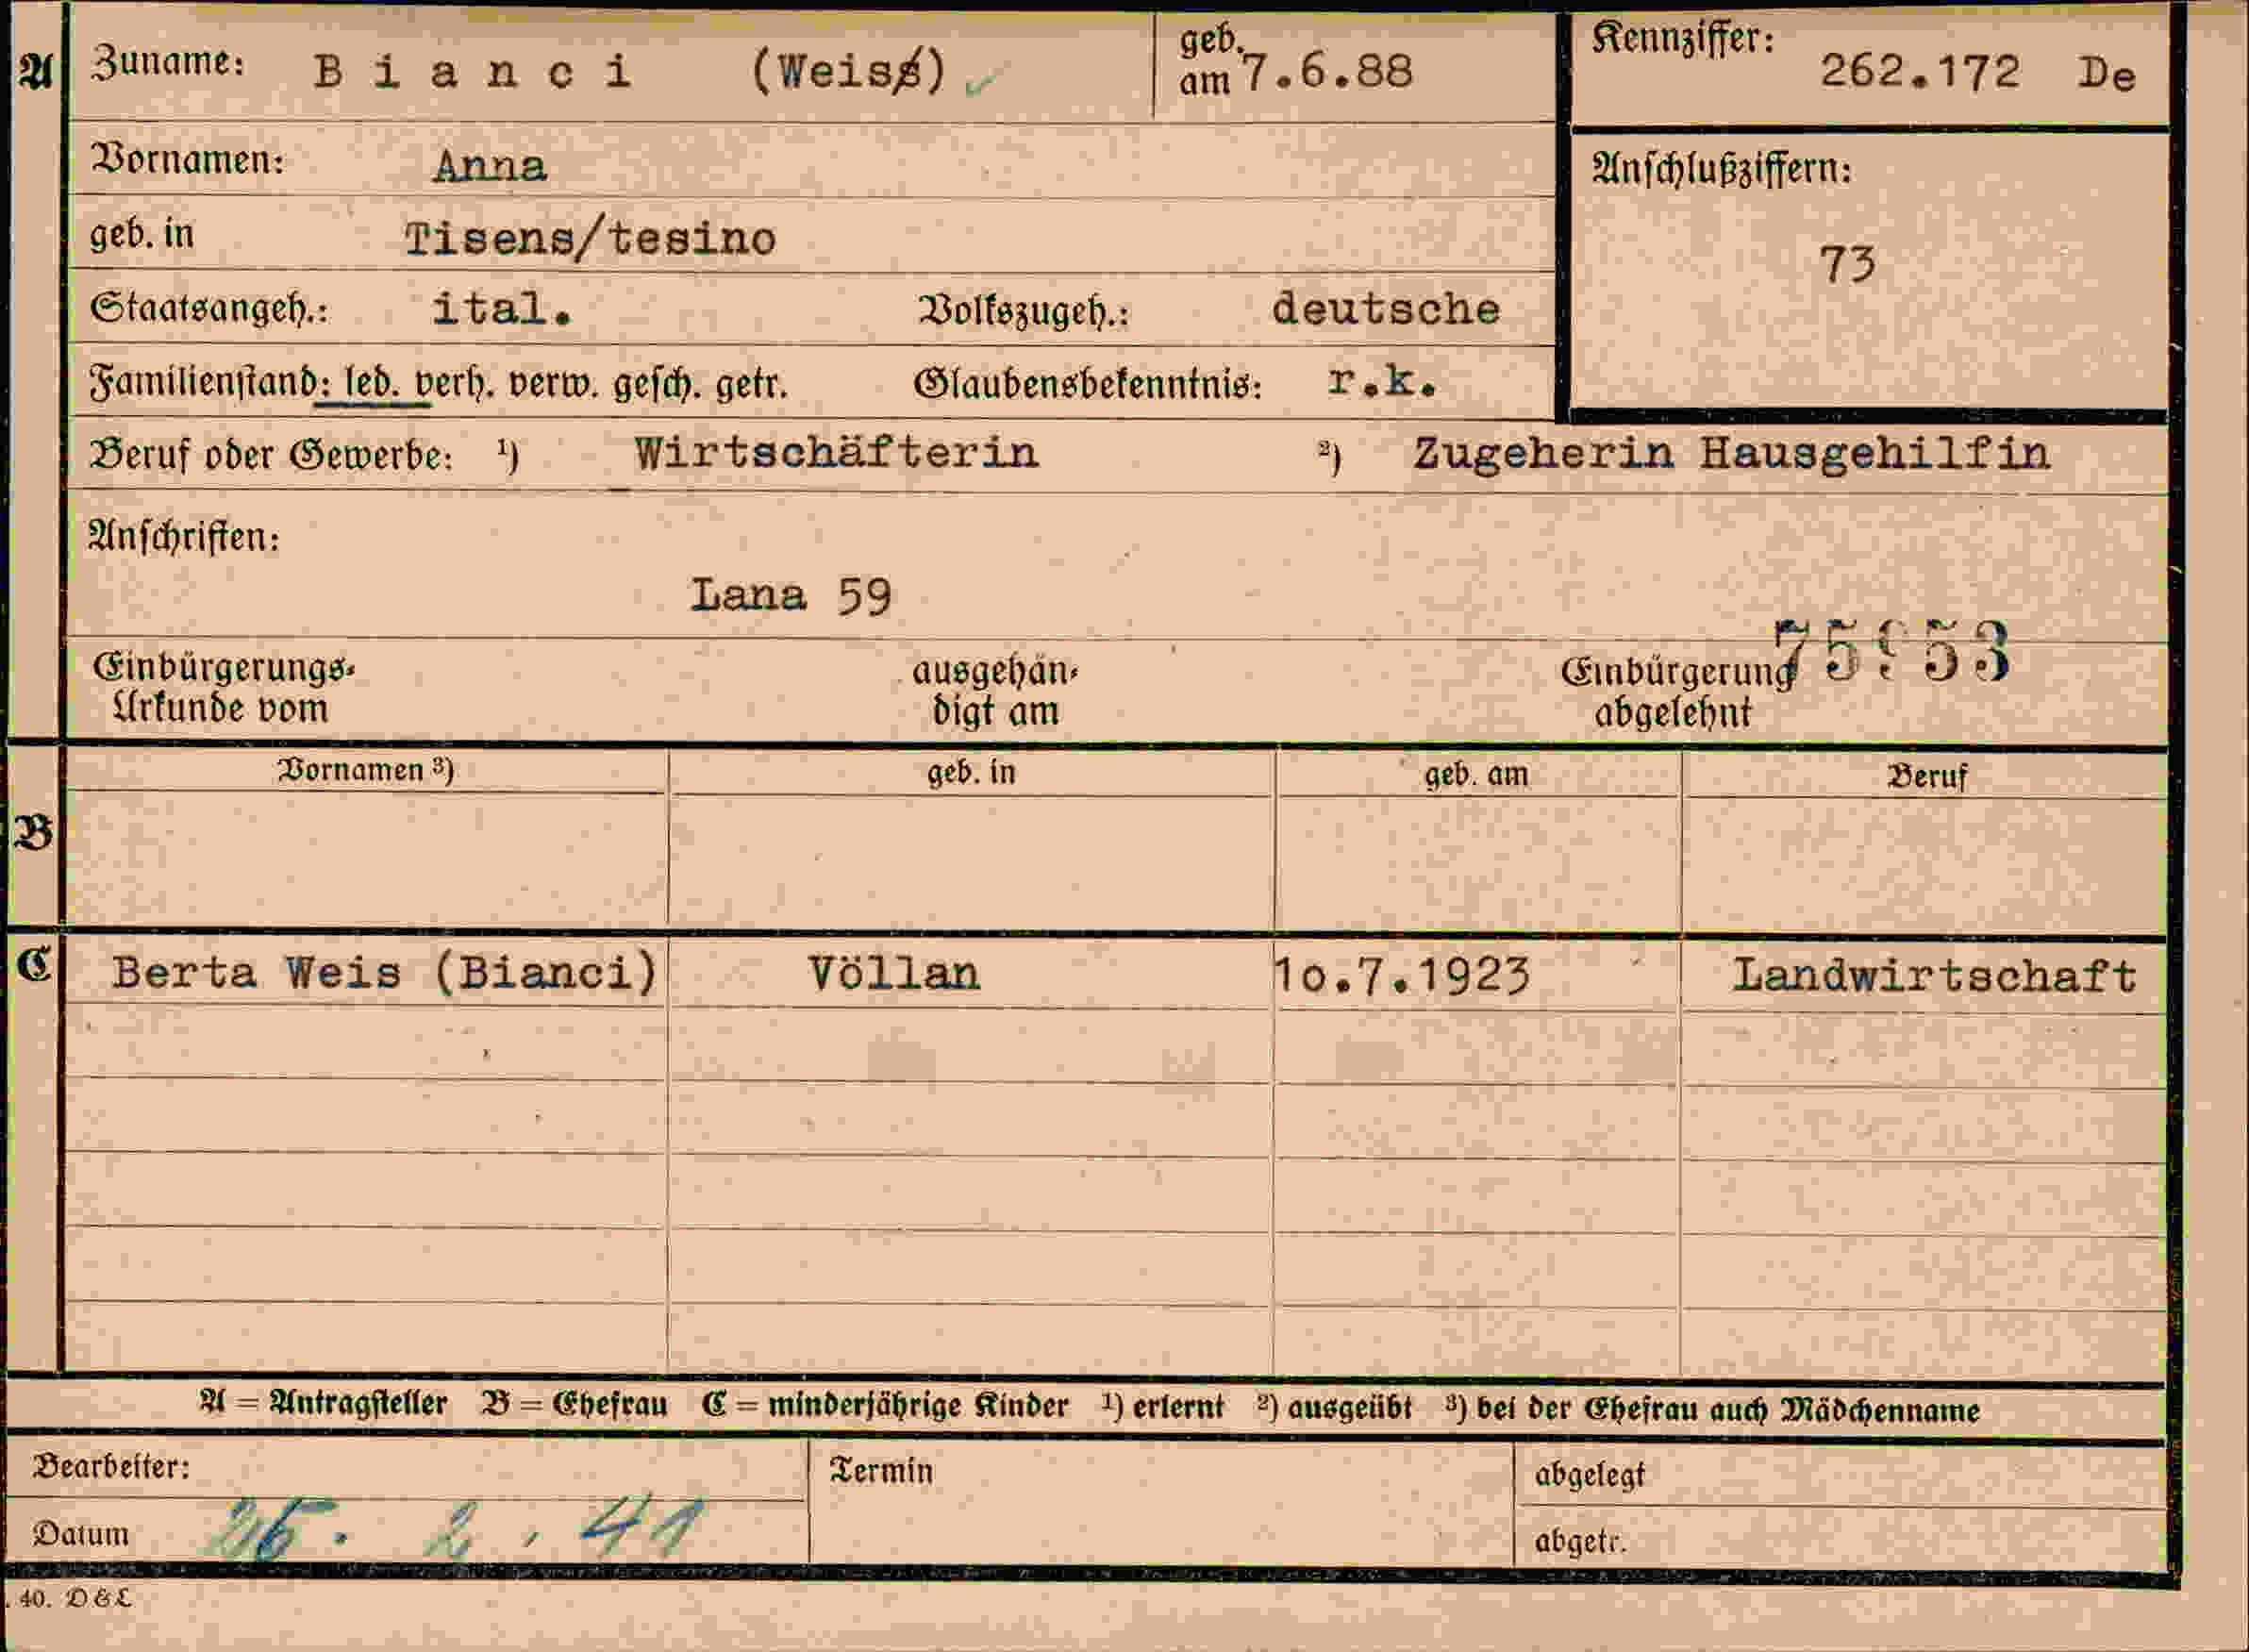 A Zuname: Bianci (Weiss) geb. am 7.6.88 Kennziffer: 262.172 De
Vornamen: Anna Anschlußziffern:
geb. in Tisens/tesino 73
Staatsangeh.: ital. Volkszugeh.: deutsche
Familienstand: led. verh. verw. gesch. getr. Glaubensbekenntnis: r.k.
Beruf oder Gewerbe: ¹) Wirtschäfterin ²) Zugeherin Hausgehilfin
Anschriften:
Lana 59
Einbürgerungs- ausgehän- Einbürgerung
Urkunde vom digt am abgelehnt
Vornamen ³) geb. in geb. am Beruf
B
C Berta Weis (Bianci) Völlan 1o.7.1923 Landwirtschaft
A = Antragsteller B = Ehefrau C = minderjährige Kinder ¹) erlernt ²) ausgeübt ³) bei der Ehefrau auch Mädchenname
Bearbeiter: Termin abgelegt
Datum 2. 41 abgetr.
. 40. D & L